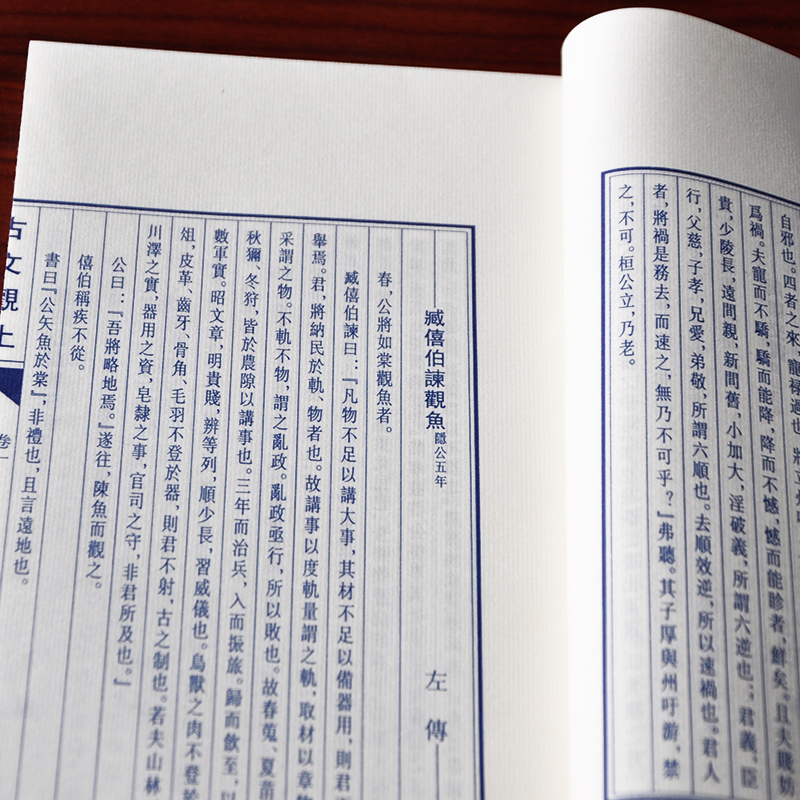 自邪也。四者之來,寵祿過也。將立州
爲禍。夫寵而不驕,驕而能降,降而不憾,憾而能眕者,鮮矣。且夫賤妨
貴,少陵長,遠間親,新間舊,小加大,淫破義,所謂六逆也;君義,臣
行,父慈,子孝,兄愛,弟敬,所謂六順也。去順效逆,所以速禍也。君人
者,將禍是務去,而速之,無乃不可乎?』弗聽。其子厚與州吁游,禁
之,不可。桓公立,乃老。
臧僖伯諫觀魚 隱公五年 左傳
春,公將如棠觀魚者。
臧僖伯諫曰:『凡物不足以講大事,其材不足以備器用,則君
舉焉。君,將納民於軌、物者也。故講事以度軌量謂之軌,取材以章物
采謂之物。不軌不物,謂之亂政。亂政亟行,所以敗也。故春蒐、夏苗
秋獮、冬狩,皆於農隙以講事也。三年而治兵,入而振旅。歸而飲至,以
數軍實。昭文章,明貴賤,辨等列,順少長,習威儀也。鳥獸之肉不登於
俎,皮革、齒牙、骨角、毛羽不登於器,則君不射,古之制也。若夫山林
川澤之實,器用之資,皂隸之事,官司之守,非君所及也。』
公曰:『吾將略地焉。』遂往,陳魚而觀之。
僖伯稱疾不從。
書曰『公矢魚於棠』,非禮也,且言遠地也。
古文觀止 卷一